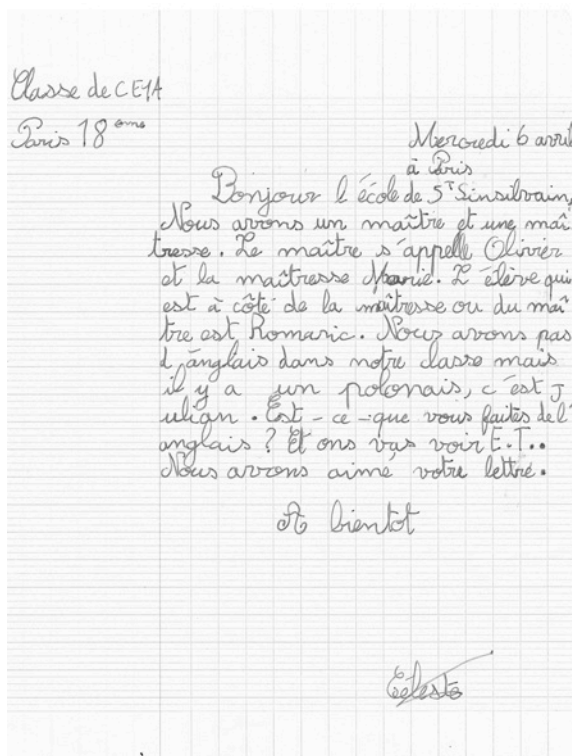 Classe de CE1A
Paris 18ème
Mercredi 6 avril
à Paris
Bonjour l'école de ST Sinsilvain,
Nous avrons un maître et une maî
tresse. Le maître s'appelle Olivier
et la maîtresse Marie. L'élève qui
est à côté de la maîtresse ou du maî
tre est Romaric. Nous avons pas
d'anglais dans notre classe mais
il y a un polonais, c'est J
ulian. Est-ce-que vous faites de l'
anglais ? Et ons vas voir E.T..
Nous avrons aimé votre lettre.
A bientot
Céleste